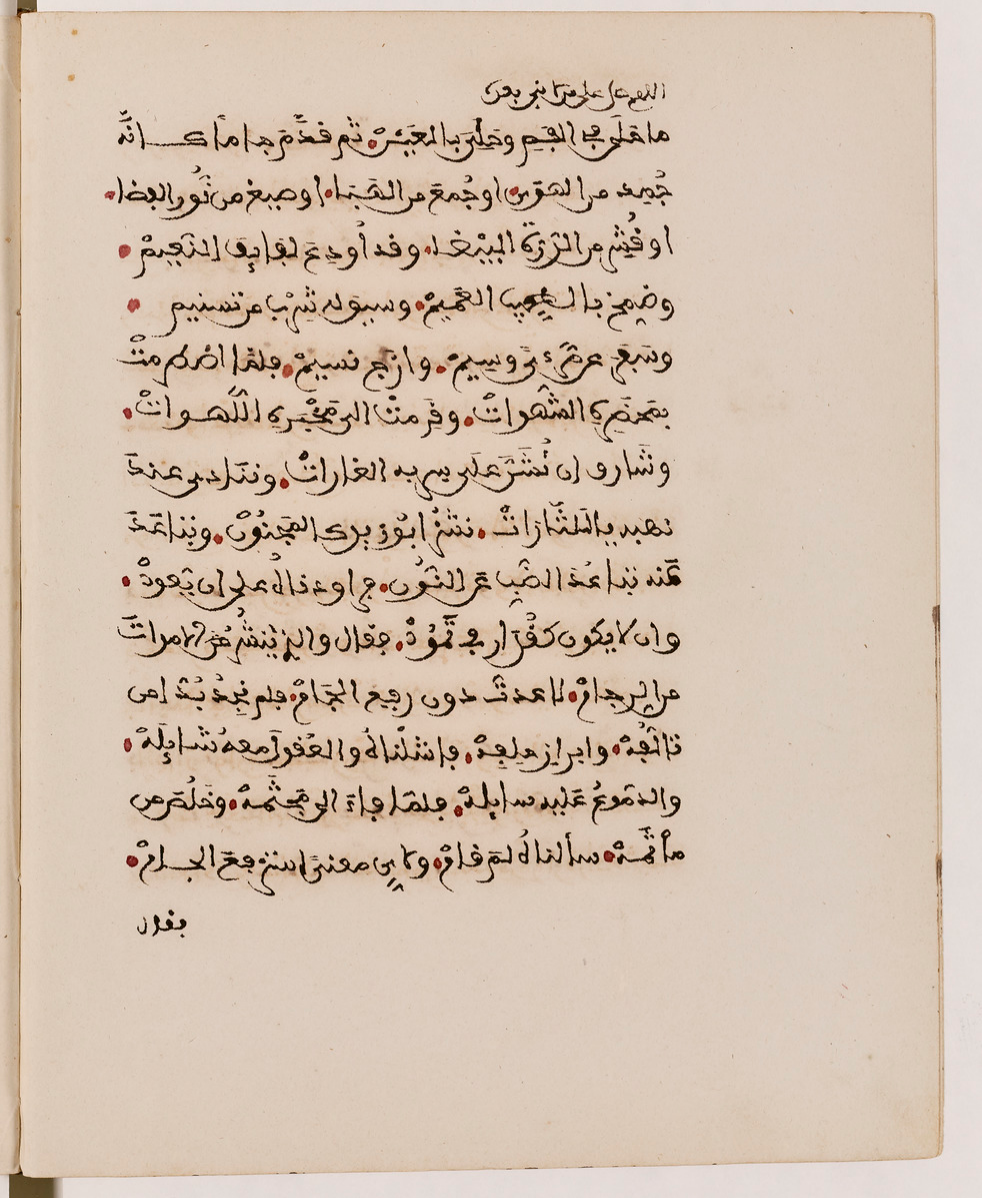 اللهم صل على من لا نبي بعده
ما حَلَى في الفم وحَلِيَ بالعَيْنْ. ثم قدَّمَ جامًا كـــانَّه
جُمِد من الهوَى. او جُمِعَ من الهَبَا. او صيغ من نُور الفضا.
او قُشِّر من الدُّرة البيْضا. وقد أُودِعَ لفايفَ النّعيمْ
وضمخ بالطيب العَميمْ. وسيق اليه شِرْب من تسنيم
وسَفَر عن مَرْءًى وسِيمْ. وارَج نسيمْ. فلمّا اضطرمتْ
بمحضره الشَّهواتْ. وقَرِمتْ الى مَخْبَره اللَّهــواتْ.
وشَارف ان تُشَنَّ على سِربه الغاراتْ. ويُنَادى عند
نهبه يا للثّاراتْ. نشزَ ابو زيد كالمجنونْ. وتباعَدَ
عَنه تباعُدَ الضّبِ من النّونْ. فراودناهُ على ان يَعودْ.
وان لا يكون كقُدَار في ثَمُودْ. فقال والذي يُنشِرُ الامواتَ
من الرجامْ. لا عدتّ دون رفع الجَامْ. فلم نجدْ بُدّا من
تالّفِهْ. وابراز حلفِهْ. فاشلْناهُ والعُقولُ معهُ شايِلَهْ.
والدموعُ عَليه سايلهْ. فلمّا فاءَ الى مَجثَمهْ. وخَلُصَ من
مأثَمهْ. سألناهُ لمَ قامْ. ولاي معنىً استرفعَ الجـامْ.
فقال